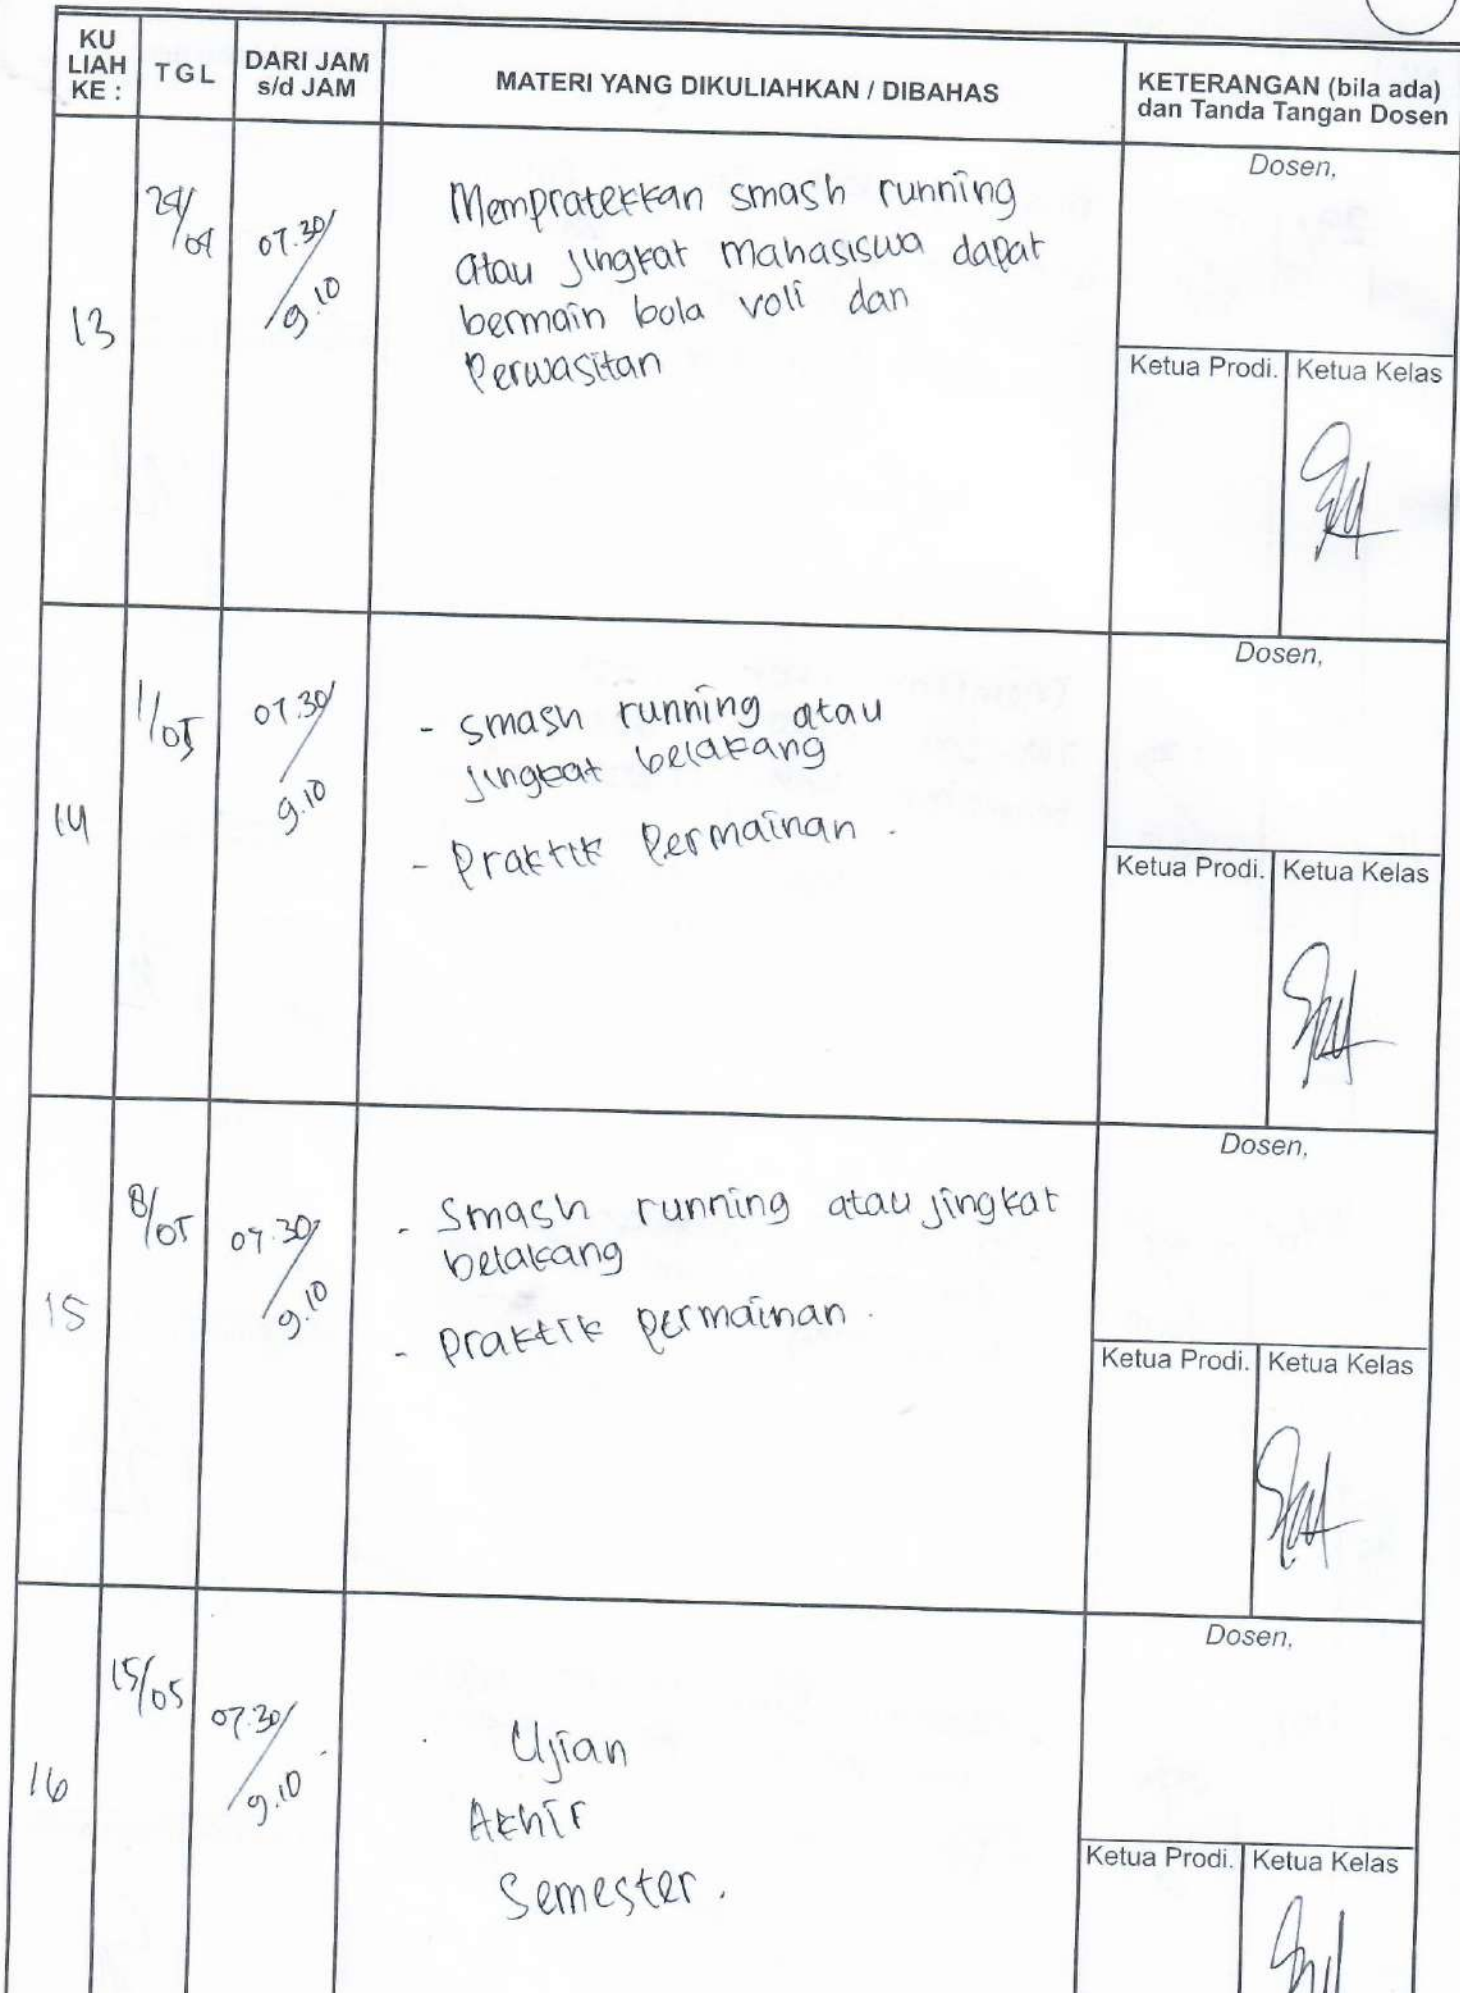 KU
LIAH
KE :
TGL
DARI JAM
s/d JAM
MATERI YANG DIKULIAHKAN / DIBAHAS
KETERANGAN (bila ada)
dan Tanda Tangan Dosen
13
24/04
07.30/
9.10
Mempratekkan smash running
atau jingkat mahasiswa dapat
bermain bola voli dan
Perwasitan
Dosen,
Ketua Prodi.
Ketua Kelas
14
1/05
07.30/
9.10
- smash running atau
jingkat belakang
- Praktik Permainan .
Dosen,
Ketua Prodi.
Ketua Kelas
15
8/05
07.30/
9.10
- Smash running atau jingkat
belakang
- praktik permainan .
Dosen,
Ketua Prodi.
Ketua Kelas
16
15/05
07.30/
9.10
Ujian
Akhir
Semester .
Dosen,
Ketua Prodi.
Ketua Kelas